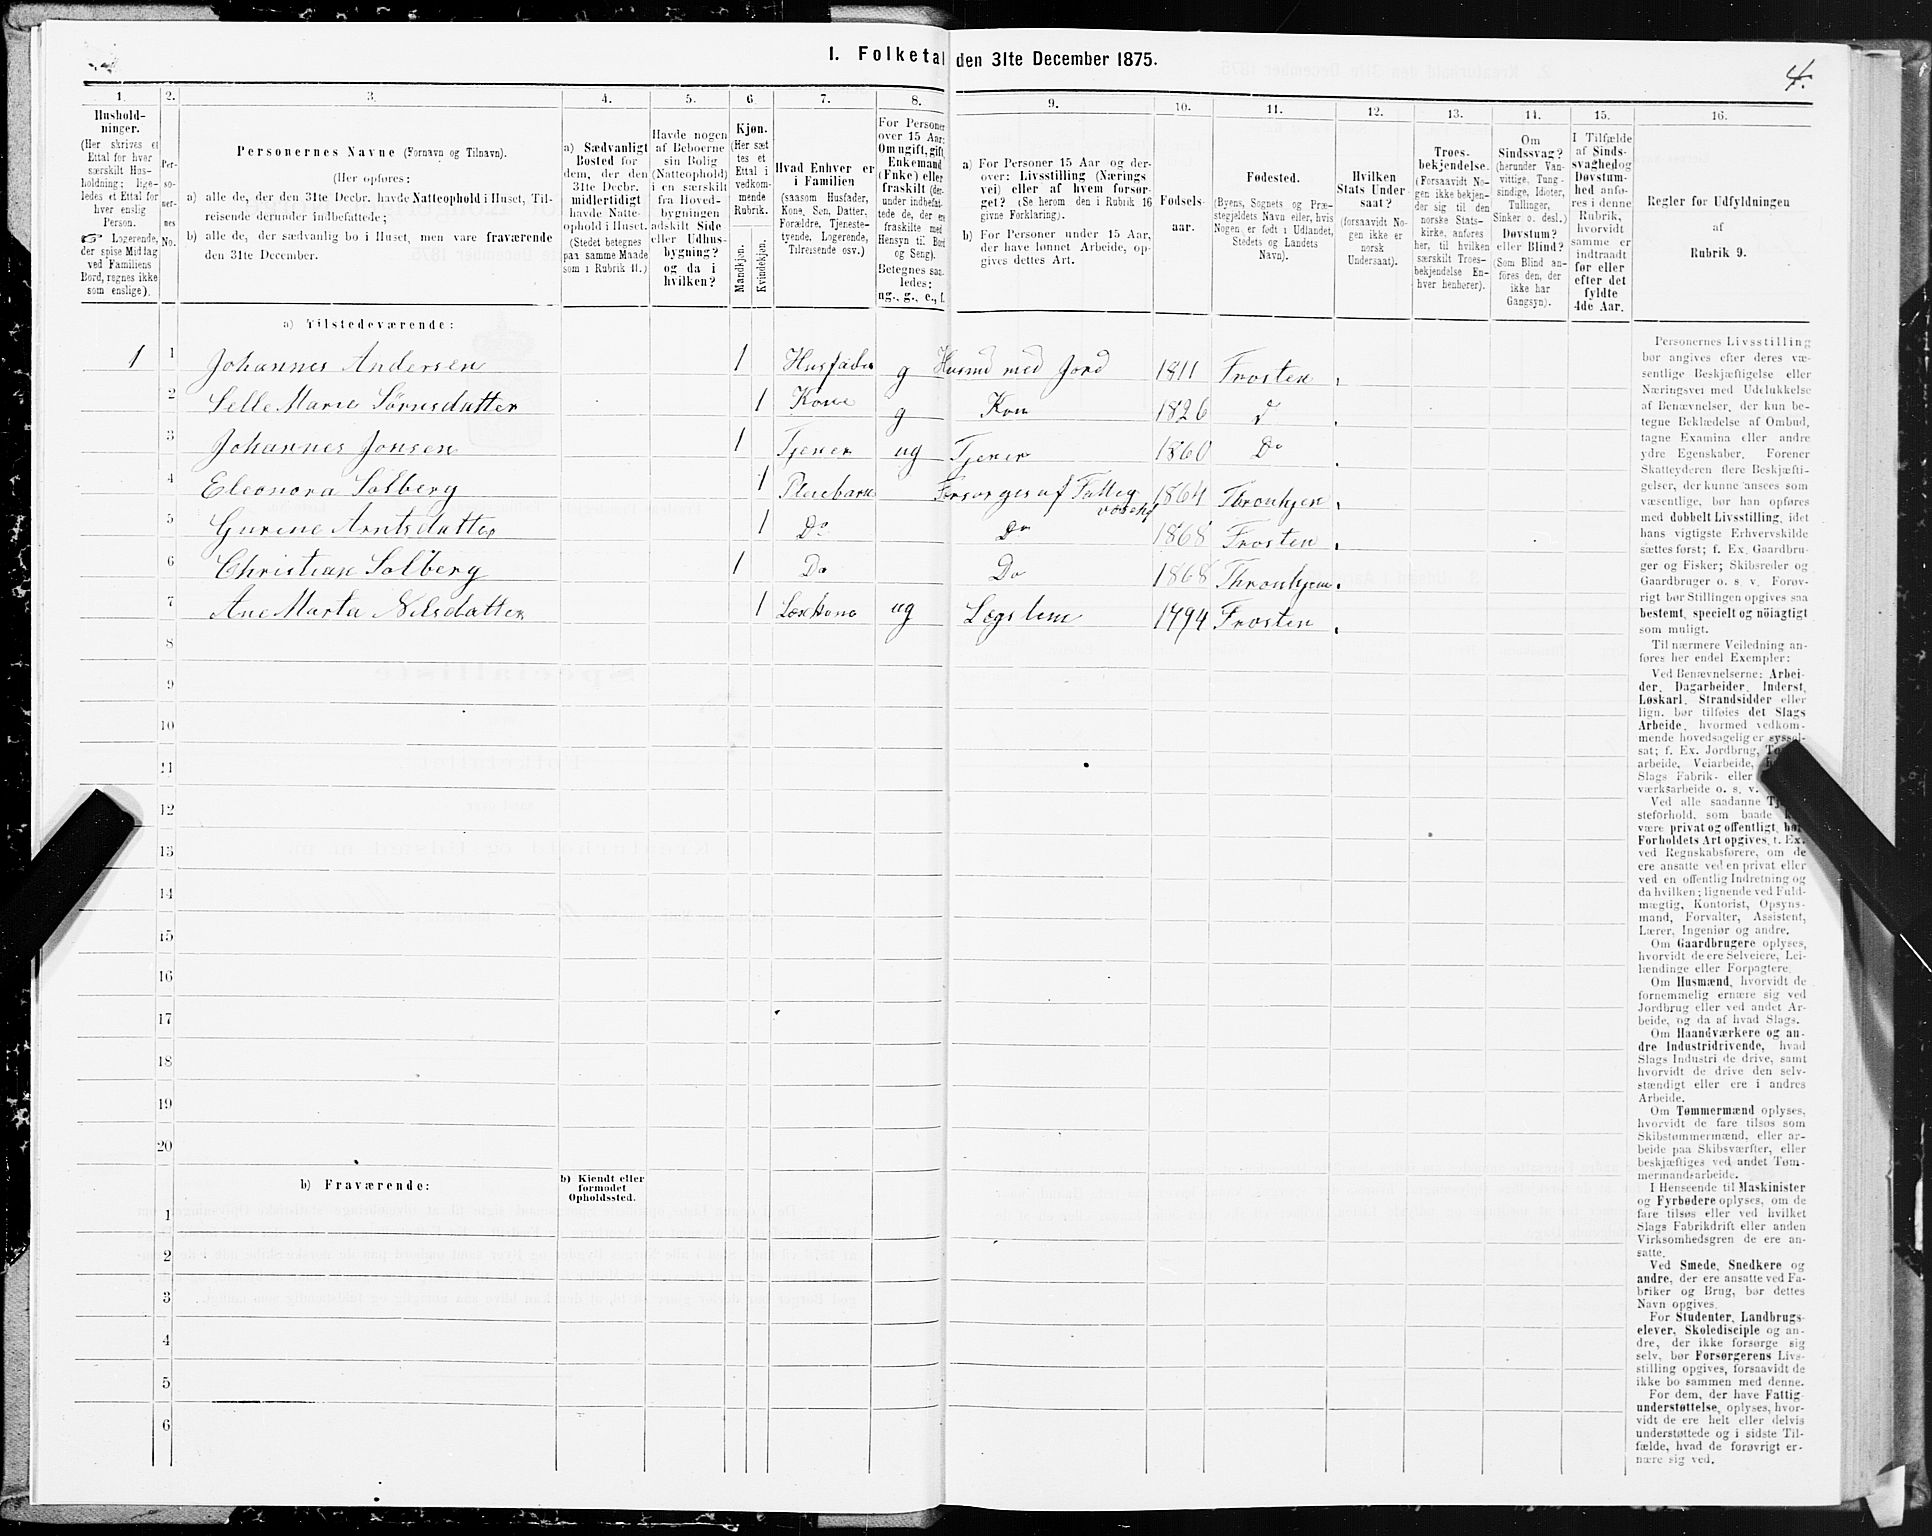 I. Folketal den 31te December 1875.
4.
1. 2. 3. 4. 5. 6 7. 8. 9. 10. 11. 12. 13. 14. 15. 16.
Hushold-
ninger.
(Her skrives et
Ettal for hver
særskilt Hus-
holdning; lige-
ledes et Ettal for
hver enslig
Person.
☞ Logerende,
der spise Middag
ved Familiens
Bord, regnes ikke
som enslige).
Per-
so-
ner-
nes
No.
Personernes Navne (Fornavn og Tilnavn).
(Her opføres:
a) alle de, der den 31te Decbr. havde Natteophold i Huset, Til-
reisende derunder indbefattede;
b) alle de, der sædvanlig bo i Huset, men vare fraværende
den 31te December.
a) Sædvanligt
Bosted for
dem, der den
31te Decbr.
midlertidigt
havde Natte-
ophold i Huset.
(Stedet betegnes
paa samme Maade
som i Rubrik 11.)
Havde nogen
af Beboerne
sin Bolig
(Natteophold)
i en særskilt
fra Hoved-
bygningen
adskilt Side
eller Udhus-
bygning?
og da i
hvilken?
Kjøn.
(Her sæt
tes et
Ettal i
vedkom-
mende
Rubrik.
Mandkjøn.
Kvindekjøn.
Hvad Enhver er
i Familien
(saasom Husfader,
Kone, Søn, Datter,
Forældre, Tjeneste-
tyende, Logerende,
Tilreisende osv.)
For Personer
over 15 Aar:
Om ugift, gift,
Enkemand
(Enke) eller
fraskilt (der-
under indbefat-
tede de, der er
fraskilte med
Hensyn til Bord
og Seng).
Betegnes saa-
ledes:
ug., g., e., f.
a) For Personer 15 Aar og der-
over: Livsstilling (Nærings
vei) eller af hvem forsør-
get? (Se herom den i Rubrik 16
givne Forklaring).
b) For Personer under 15 Aar,
der have lønnet Arbeide, op-
gives dettes Art.
Fødsels-
aar.
Fødested.
(Byens, Sognets og Præ-
stegjeldets Navn eller, hvis
Nogen er født i Udlandet,
Stedets og Landets
Navn).
Hvilken
Stats Under-
saat?
(forsaavidt No-
gen ikke er
norsk
Undersaat).
Troes-
bekjendelse.
(Forsaavidt No-
gen ikke bekjen-
der sig til den
norske Stats-
kirke, anføres
her, til hvilken
særskilt Troes-
bekjendelse En-
hver henhører).
Om
Sindssvag?
(herunder Van-
vittige, Tung-
sindige, Idioter,
Tullinger,
Sinker o. desl.)
Døvstum?
eller Blind?
(Som Blind an-
føres den, der
ikke har
Gangsyn).
I Tilfælde
af Sinds-
svaghed og
Døvstum-
hed anfø-
res i denne
Rubrik,
hvorvidt
samme er
indtraadt
før eller
efter det
fyldte
4de Aar.
Regler for Udfyldningen
af
Rubrik 9.
a) Tilstedeværende:
1 1 Johannes Andersen 1 Husfader g Husmd med Jord 1811 Frosten
2 Selle Marie Sørnsdatter 1 Kone g Kone 1826 D
3 Johannes Jonsen 1 Tjener ug Tjener 1860 Do
4 Eleonora Solberg 1 Pleiebarn Forsørges af Fattig væsenet 1864 Thronhjem
5 Gurine Arntsdatter 1 Do Do 1868 Frosten
6 Christian Solberg 1 Do Do 1868 Thronhjem
7 Ane Marta Nilsdatter 1 ug Lægslem 1794 Frosten
8
9
10
11
12
13
14
15
16
17
18
19
20
b) Fraværende:
b) Kjendt eller
formodet
Opholdssted.
1
2
3
4
5
6
Personernes Livsstilling
bør angives efter deres væ-
sentlige Beskjæftigelse eller
Næringsvei med Udelukkelse
af Benævnelser, der kun be-
tegne Beklædelse af Ombud,
tagne Examina eller andre
ydre Egenskaber. Forener
Skatteyderen flere Beskjæfti-
gelser, der kunne ansees som
væsentlige, bør han opføres
med dobbelt Livsstilling, idet
hans vigtigste Erhvervskilde
sættes først; f. Ex. Gaardbru-
ger og Fisker; Skibsreder og
Gaardbruger o. s. v. Forøv-
rigt bør Stillingen opgives saa
bestemt, specielt og nöiagtigt
som muligt.
Til nærmere Veiledning an-
føres her endel Exempler:
Ved Benævnelserne: Arbei-
der, Dagarbeider, Inderst,
Løskarl, Strandsidder eller
lign. bør tilføies det Slags
Arbeide, hvormed vedkom-
mende hovedsagelig er syssel-
sat; f. Ex. Jordbrug,
arbeide, Veiarbeide,
Slags Fabrik- eller
værksarbeide o. s. v.
Ved alle saadanne
steforhold, som baade
være privat og offentligt, bør
Forholdets Art opgives, t. Ex.
ved Regnskabsførere, om de
ere ansatte ved en privat eller
ved en offentlig Indretning og
da hvilken; lignende ved Fuld-
mægtig, Kontorist, Opsyns-
mand, Forvalter, Assistent,
Lærer, Ingeniør og andre.
Om Gaardbrugere oplyses,
hvorvidt de ere Selveiere, Lei-
lændinge eller Forpagtere.
Om Husmænd, hvorvidt de
fornemmelig ernære sig ved
Jordbrug eller ved andet Ar-
beide, og da af hvad Slags.
Om Haandværkere og an-
dre Industridrivende, hvad
Slags Industri de drive, samt
hvorvidt de drive den selv-
stændigt eller ere i andres
Arbeide.
Om Tømmermænd oplyses,
hvorvidt de fare tilsøs som
Skibstømmermænd, eller ar-
beide paa Skibsværfter, eller
beskjæftiges ved andet Tøm-
mermandsarbeide.
I Henseende til Maskinister
og Fyrbødere oplyses, om de
fare tilsøs eller ved hvilket
Slags Fabrikdrift eller anden
Virksomhedsgren de ere an-
satte.
Ved Smede, Snedkere og
andre, der ere ansatte ved Fa-
briker og Brug, bør dettes
Navn opgives.
For Studenter, Landbrugs-
elever, Skoledisciple og an-
dre, der ikke forsørge sig
selv, bør Forsørgerens Livs-
stilling opgives, forsaavidt de
ikke bo sammen med denne.
For dem, der have Fattig-
understøttelse, oplyses, hvor-
vidt de ere helt eller delvis
understøttede og i sidste Til-
fælde, hvad de forøvrigt er-
nære sig ved.